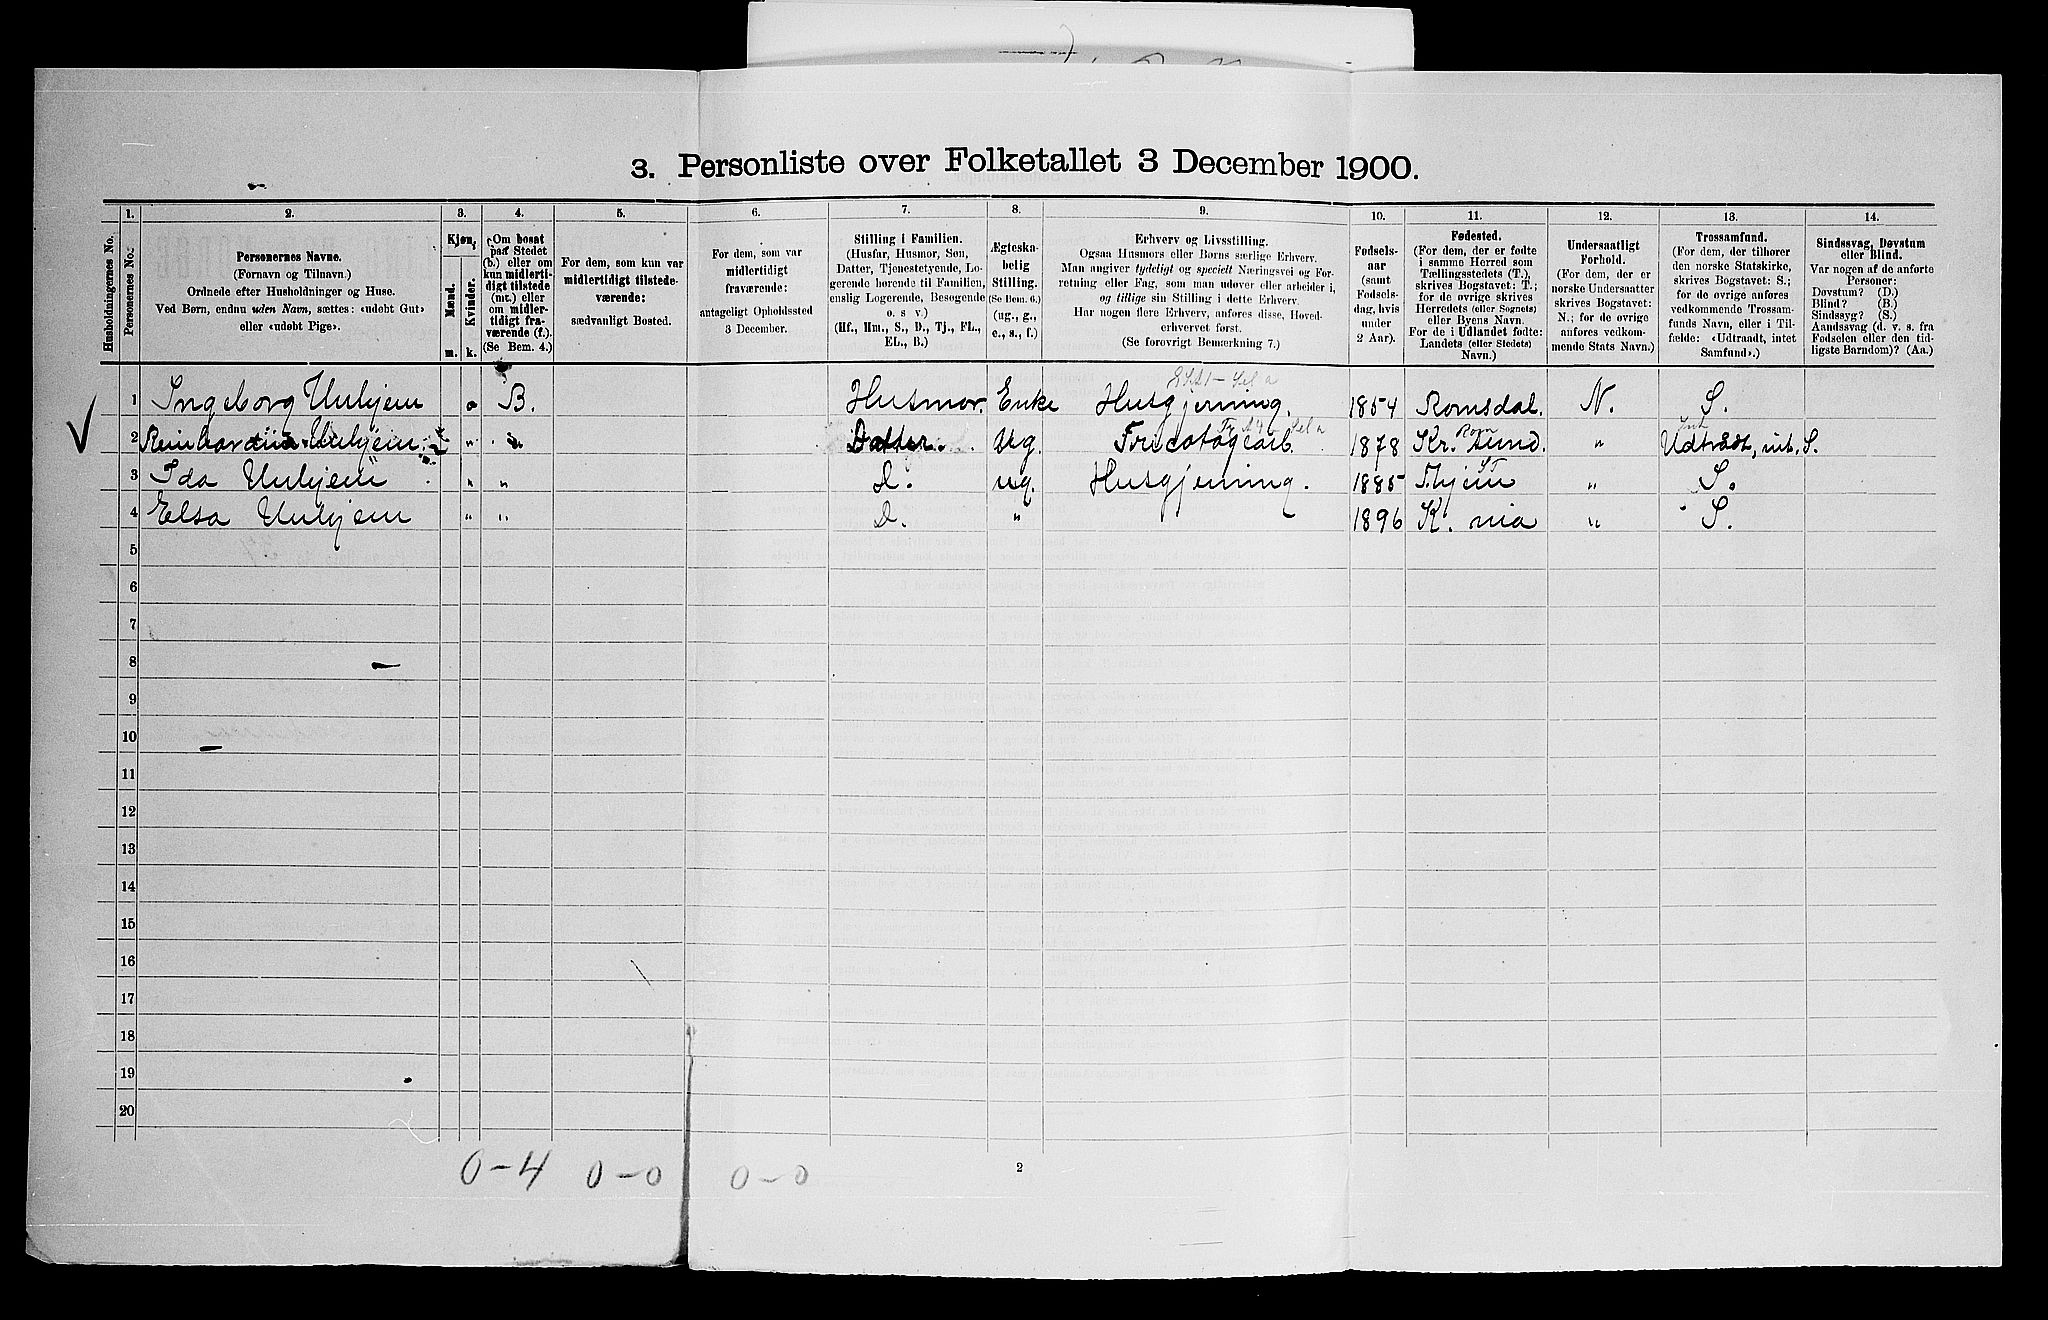 3. Personliste over Folketallet 3 December 1900.
1. 2. 3. 4. 5. 6. 7. 8. 9. 10. 11. 12. 13. 14.
Husholdningernes No.
Personernes No.
Personernes Navne.
(Fornavn og Tilnavn.)
Ordnede efter Husholdninger og Huse.
Ved Børn, endnu uden Navn, sættes: «udøbt Gut»
eller «udøbt Pige».
Kjøn.
Mænd.
Kvinder.
m. k.
Om bosat
paa Stedet
(b.) eller om
kun midlerti-
digt tilstede
(mt.) eller
om midler-
tidigt fra-
værende (f.).
(Se Bem. 4.)
For dem, som kun var
midlertidigt tilstede-
værende:
sædvanligt Bosted.
For dem, som var
midlertidigt
fraværende:
antageligt Opholdssted
3 December.
Stilling i Familien.
(Husfar, Husmor, Søn,
Datter, Tjenestetyende, Lo-
gerende hørende til Familien,
enslig Logerende, Besøgende
o. s. v.)
(Hf., Hm., S., D., Tj., FL.,
EL., B.)
Ægteska-
belig
Stilling.
(Se Bem. 6.)
(ug., g.,
e., s., f.)
Erhverv og Livsstilling.
Ogsaa Husmors eller Børns særlige Erhverv.
Man angiver tydeligt og specielt Næringsvei og For-
retning eller Fag, som man udøver eller arbeider i,
og tillige sin Stilling i dette Erhverv.
Har nogen flere Erhverv, anføres disse, Hoved-
erhvervet først.
(Se forøvrigt Bemærkning 7.)
Fødsels-
aar
(samt
Fødsels-
dag, hvis
under
2 Aar).
Fødested.
(For dem, der er fødte
i samme Herred som
Tællingsstedets (T.),
skrives Bogstavet: T.;
for de øvrige skrives
Herredets (eller Sognets)
eller Byens Navn.
For de i Udlandet fødte:
Landets (eller Stedets)
Navn.)
Undersaatligt
Forhold.
(For dem, der er
norske Undersaatter
skrives Bogstavet:
N.; for de øvrige
anføres vedkom-
mende Stats Navn.)
Trossamfund.
(For dem, der tilhører
den norske Statskirke,
skrives Bogstavet: S.;
for de øvrige anføres
vedkommende Trossam-
funds Navn, eller i Til-
fælde: «Udtraadt, intet
Samfund».)
Sindssvag, Døvstum
eller Blind.
Var nogen af de anførte
Personer:
Døvstum? (D.)
Blind? (B.)
Sindssyg? (S.)
Aandssvag (d. v. s. fra
Fødselen eller den tid-
ligste Barndom)? (Aa.)
1 Ingeborg Unhjem B. Husmor. Enke Husgjerning. 1854 Romsdal. N. S.
2 Reinhardine Unhjem " " Datter. Ug. 1878 Kr. sund. " Udtrådt, int. S.
3 Ida Unhjem " " D. ug. Husgjerning. 1885 " S.
4 Elsa Unhjem " " D. " 1896 K. nia " S.
5
6
7
8
9
10
11
12
13
14
15
16
17
18
19
20
0-4 0-0 0-0
2